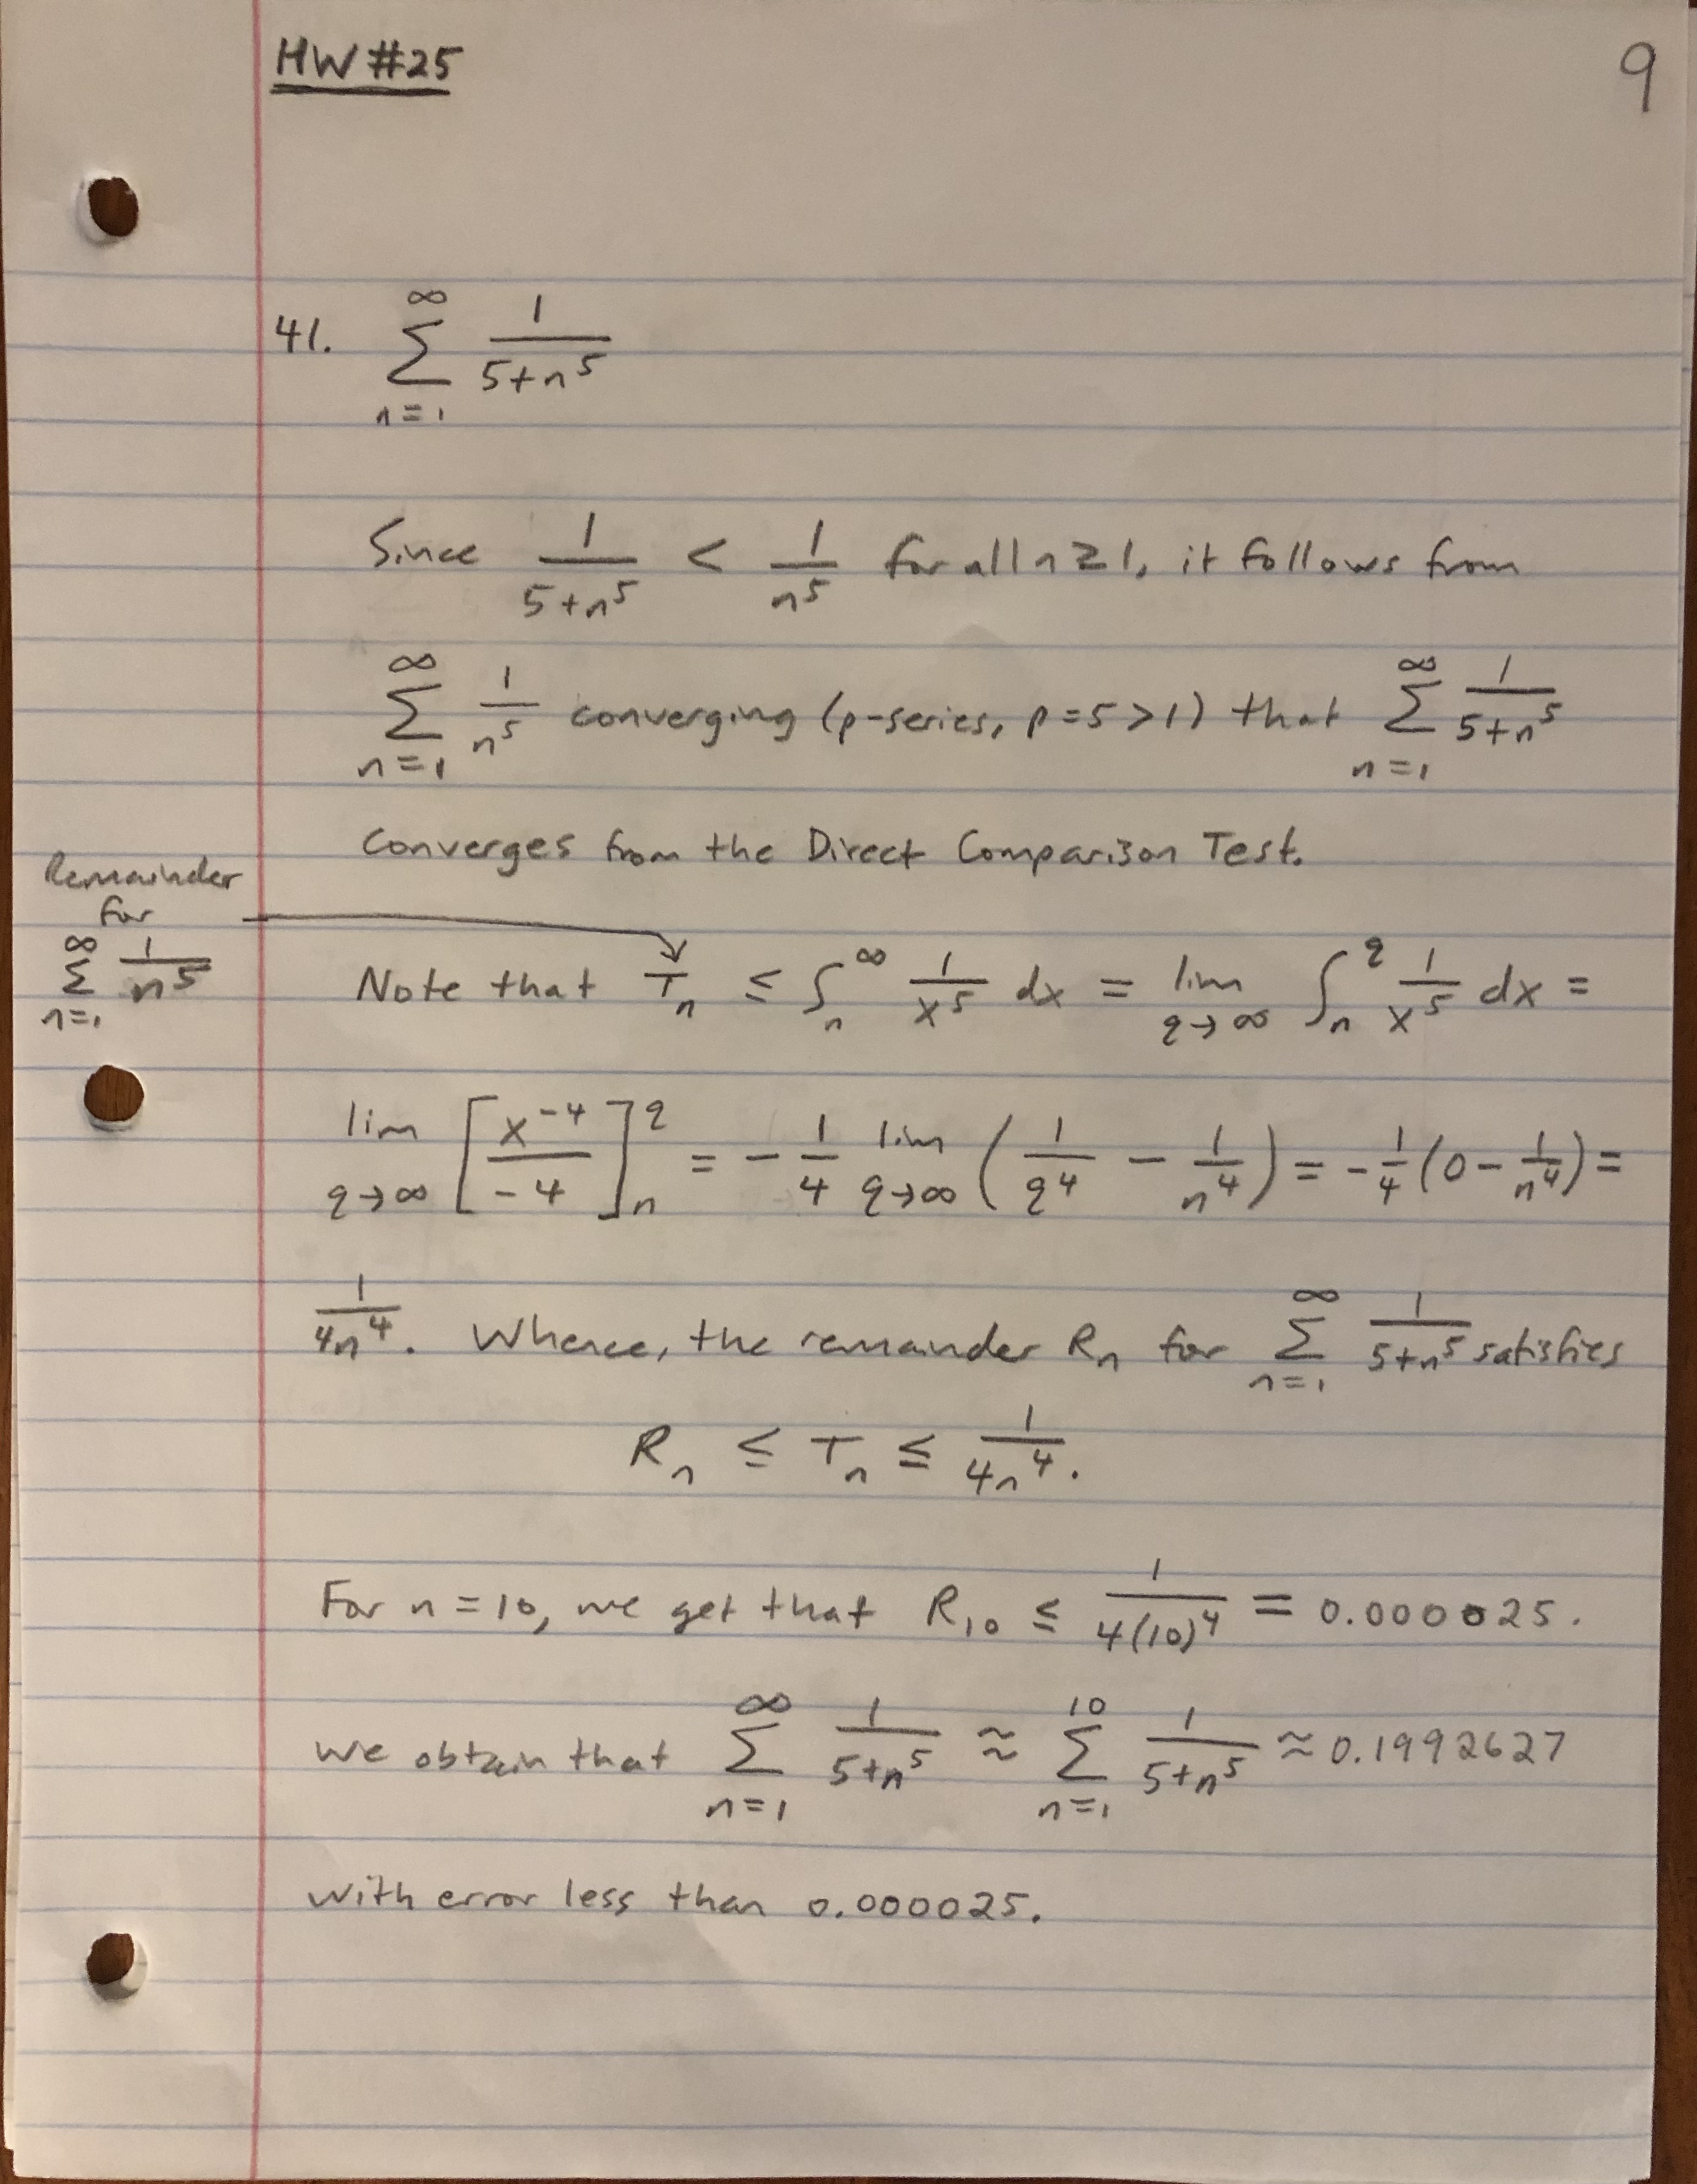 HW #25
9
41. ∞ ∑ n=1 1/(5+n^5)
Since 1/(5+n^5) < 1/n^5 for all n ≥ 1, it follows from
∞ ∑ n=1 1/n^5 converging (p-series, p=5>1) that ∞ ∑ n=1 1/(5+n^5)
converges from the Direct Comparison Test.
Remainder
for
∞ ∑ n=1 1/n^5
Note that T_n ≤ ∫_n^∞ 1/x^5 dx = lim q→∞ ∫_n^q 1/x^5 dx =
lim q→∞ [x^-4/-4]_n^q = -1/4 lim q→∞ (1/q^4 - 1/n^4) = -1/4 (0 - 1/n^4) =
1/4n^4. Whence, the remainder R_n for ∞ ∑ n=1 1/(5+n^5) satisfies
R_n ≤ T_n ≤ 1/4n^4.
For n=10, we get that R_10 ≤ 1/4(10)^4 = 0.000025.
We obtain that ∞ ∑ n=1 1/(5+n^5) ≈ 10 ∑ n=1 1/(5+n^5) ≈ 0.1992627
with error less than 0.000025.